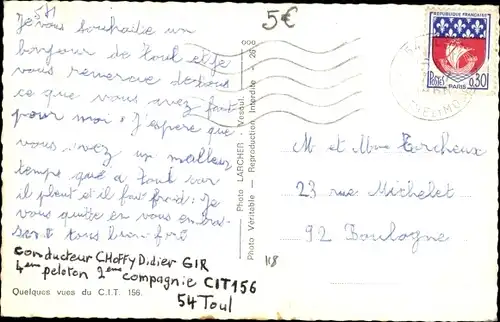 541
5€
Je vous souhaite un
bonjour de toul et je
vous remercie de tous
ce que vous avez fait
pour moi. J'espere que
vous avez un meilleur
temps que a toul car
il pleut et il fait froid. Je
vous quitte en vous embras-
sant tous bien fort
conducteur CHoffy Didier GIR
4em peloton 2eme compagnie CIT156
54 Toul
Quelques vues du C.I.T. 156.
Photo LARCHER - Vesoul
Photo Véritable - Reproduction Interdite
REPUBLIQUE FRANÇAISE
POSTES
0,30
PARIS
M et Mme Torcheux
23 rue Michelet
92 Boulogne
118